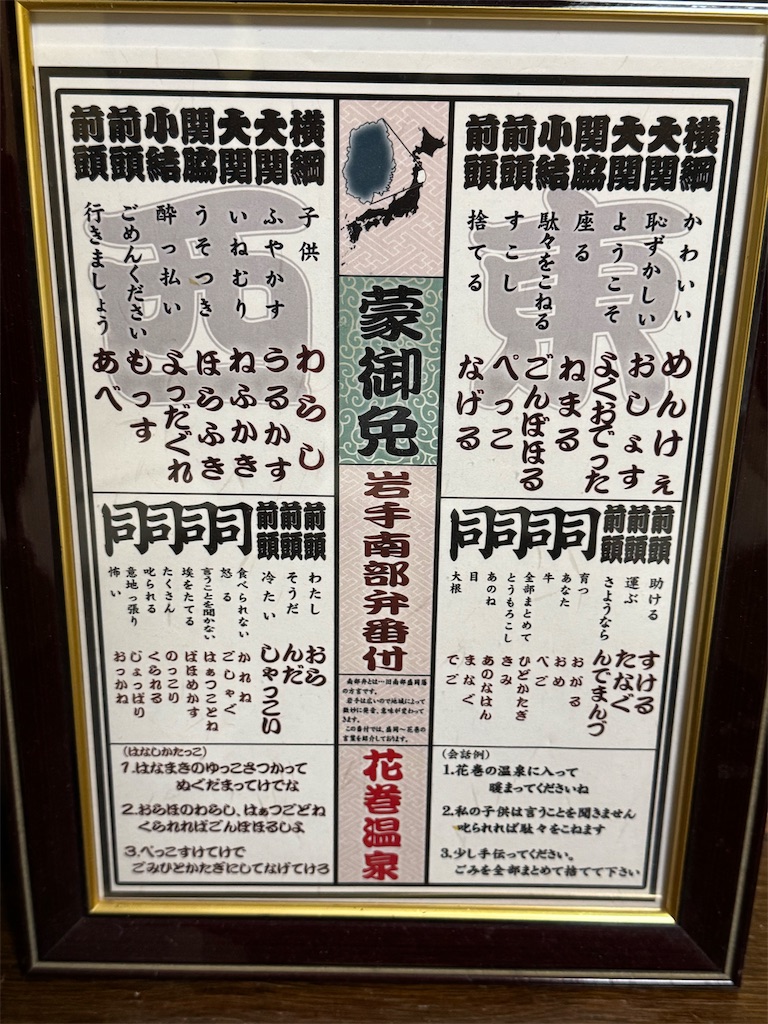 東
横綱 かわいい めんけぇ
大関 恥ずかしい おしょす
大関 ようこそ よくおでった
関脇 座る ねまる
小結 駄々をこねる ごんぼほる
前頭 すこし ぺっこ
前頭 捨てる なげる
前頭 助ける すける
前頭 運ぶ たなぐ
前頭 さようなら んでまんづ
同 同 同 同
育つ おがる
あなた おめ
牛 べご
全部まとめて ひどかたぎ
とうもろこし きみ
あのね あのなはん
目 まなぐ
大根 でご
(会話例)
1.花巻の温泉に入って
暖まってくださいね
2.私の子供は言うことを聞きません
叱られれば駄々をこねます
3.少し手伝ってください。
ごみを全部まとめて捨てて下さい
蒙御免
岩手南部弁番付
南部弁とは…旧南部盛岡藩
の方言です。
岩手は広いので地域によって
微妙に発音、意味が変わって
きます。
この番付では、盛岡〜花巻の
言葉を紹介しております。
花巻温泉
西
横綱 子供 わらし
大関 ふやかす うるかす
大関 いねむり ねふかき
関脇 うそつき ほらふき
小結 酔っ払い よっだぐれ
前頭 ごめんください もっす
前頭 行きましょう あべ
前頭 わたし おら
前頭 そうだ んだ
前頭 冷たい しゃっこい
同 同 同 同
食べられない かれね
怒る ごしゃぐ
言うことを聞かない はぁつことね
埃をたてる ばほめかす
たくさん のっこり
叱られる くられる
意地っ張り じょっぱり
怖い おっかね
(はなしかたっこ)
1.はなまきのゆっこさつかって
ぬぐだまってけでな
2.おらほのわらし、はぁつごどね
くられればごんぼほるしよ
3.ぺっこすけてけで
ごみひどかたぎにしてなげてけろ